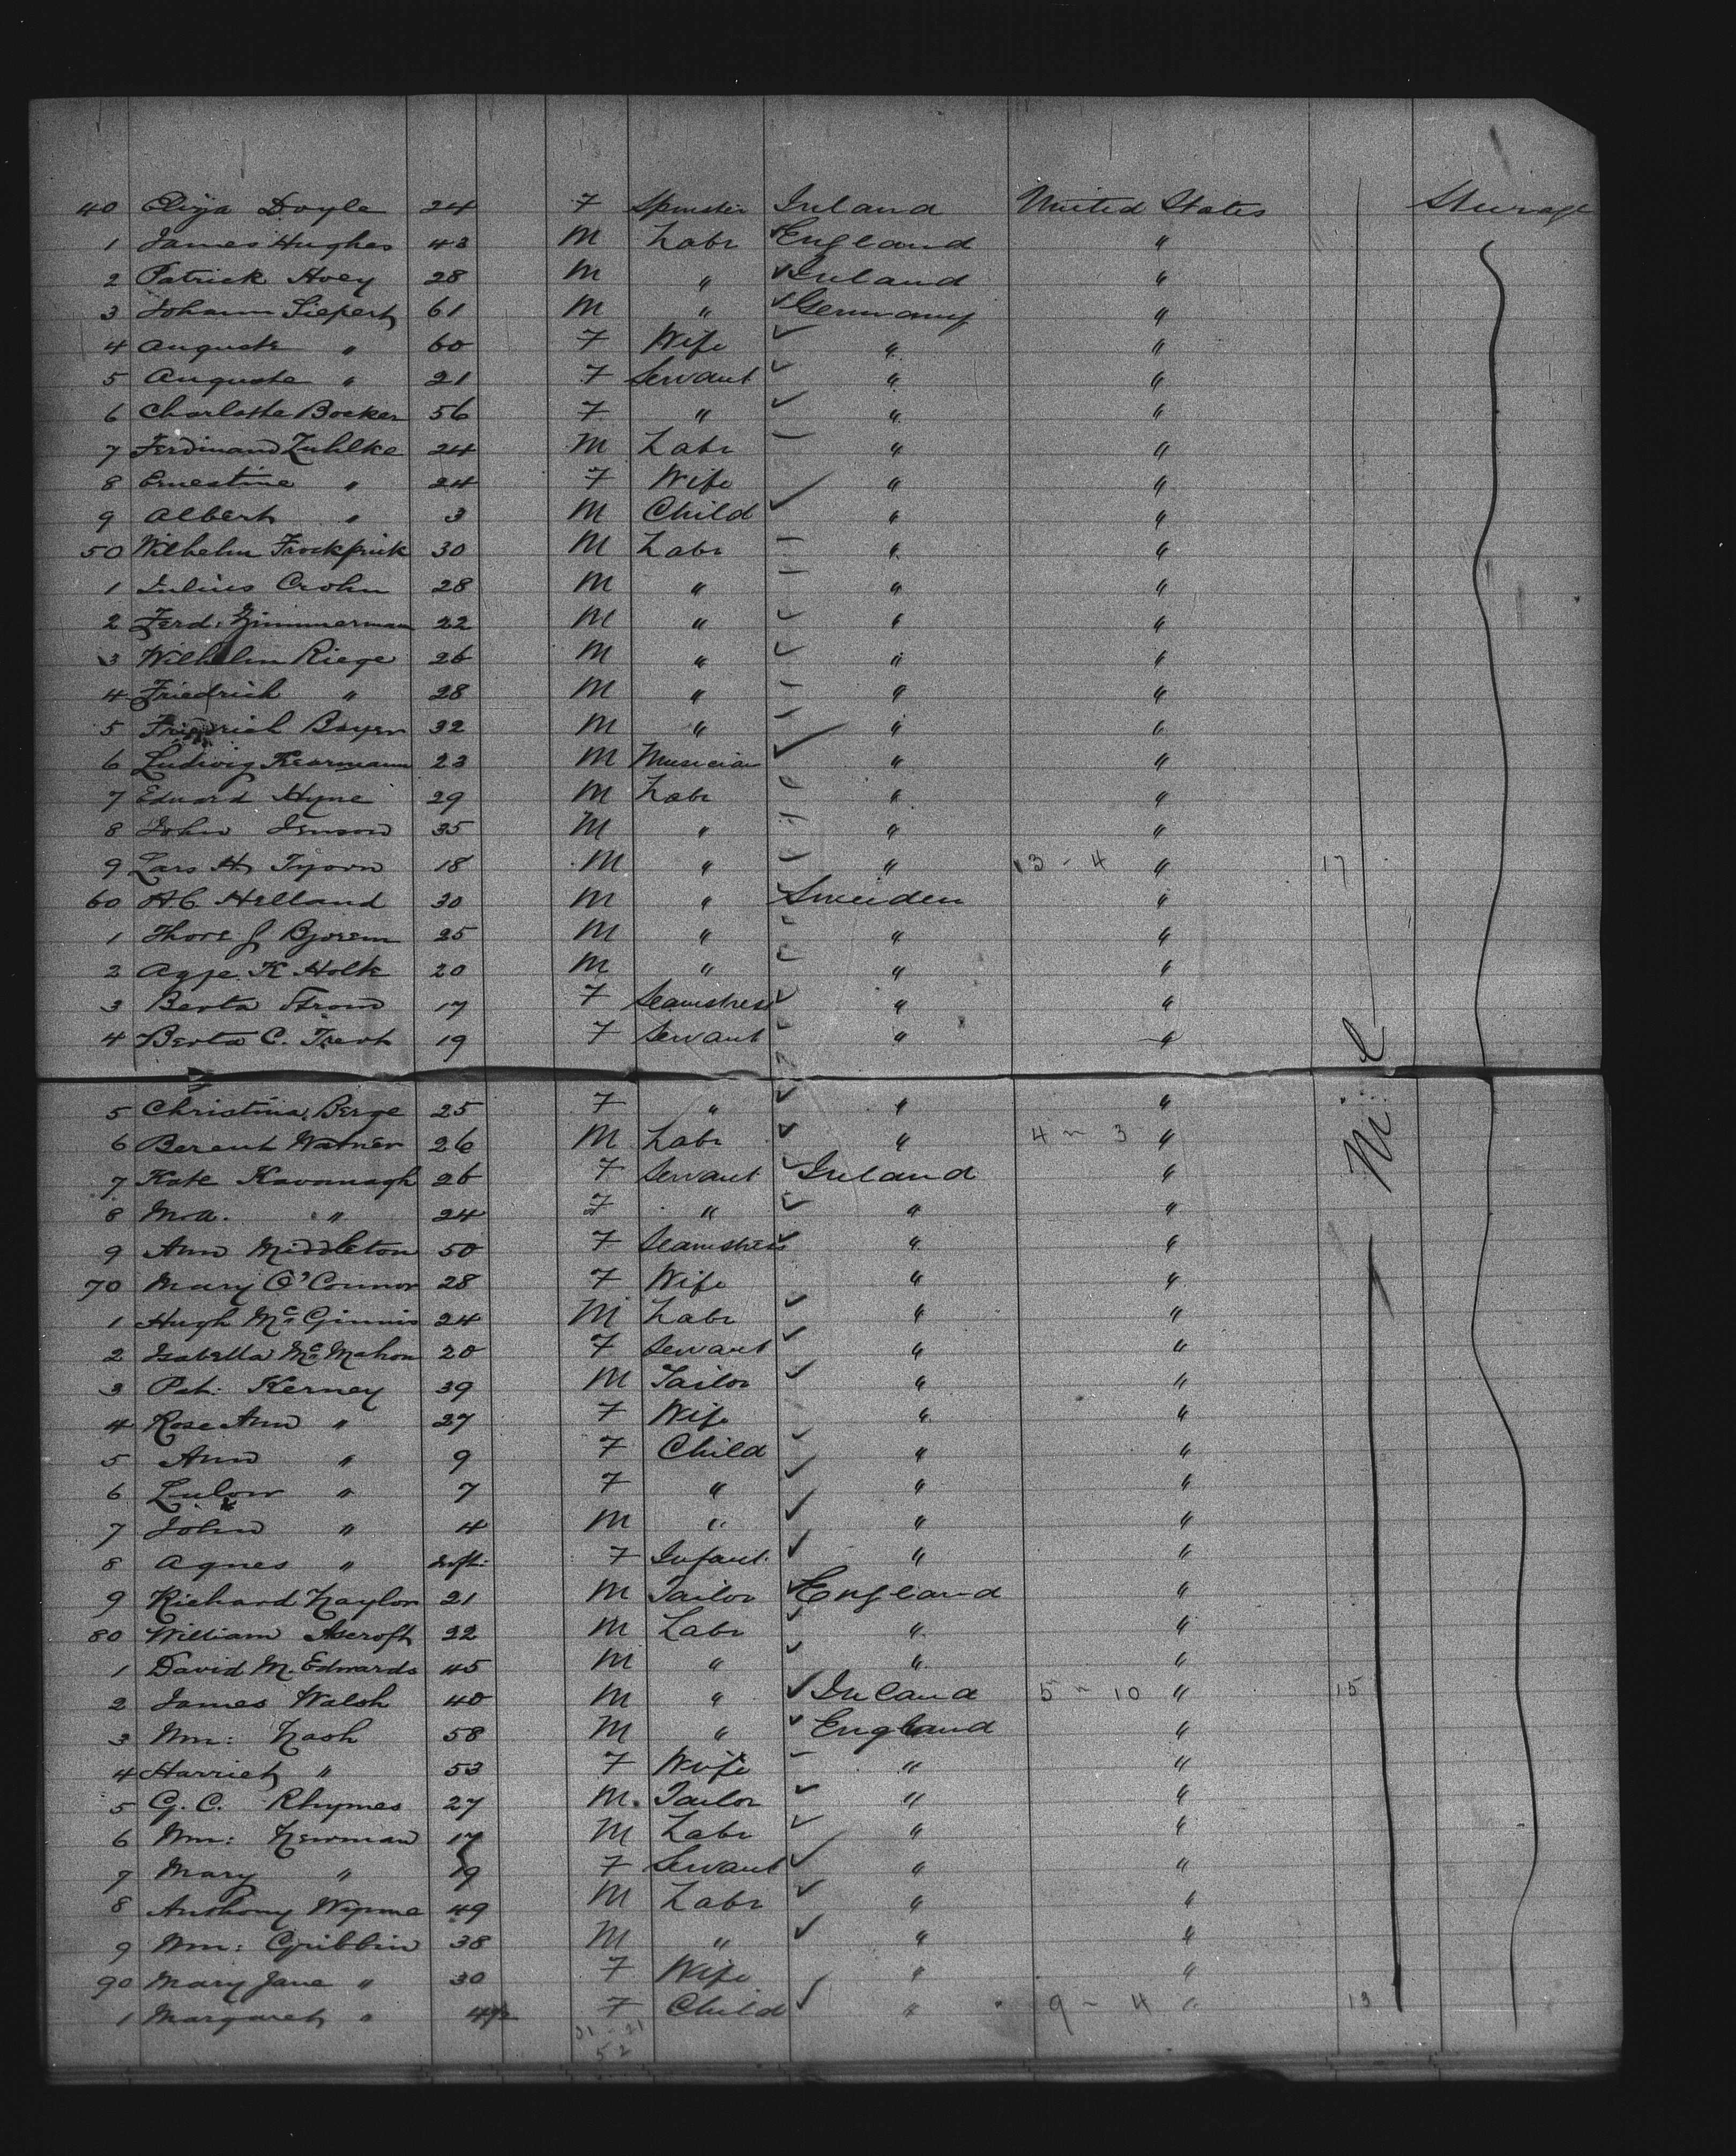 40 Eliza Doyle 24 F Spinster Ireland United States Steerage
1 James Hughes 43 M Labr England "
2 Patrick Hoey 28 M " Ireland "
3 Johann Siepert 61 M " Germany "
4 Auguste " 60 F Wife " "
5 Auguste " 21 F Servant " "
6 Charlotte Boeker 56 F " " "
7 Ferdinand Zuhlke 24 M Labr " "
8 Ernestine " 24 F Wife " "
9 Albert " 3 M Child " "
50 Wilhelm 30 M Labr " "
1 Julius Crohn 28 M " " "
2 Ferd. Zimmerman 22 M " " "
3 Wilhelm Riege 26 M " " "
4 Friedrich " 28 M " " "
5 Friedrich 32 M " " "
6 Ludwig 23 M Musician " "
7 Eduard Hyne 29 M Labr " "
8 John Jenson 35 M " " "
9 Lars H. 18 M " " 13 - 4 " 17
60 Helland 30 M " Sweiden "
1 Thore J Bjorem 25 M " " "
2 Agge K Holk 20 M " " "
3 Berta Strom 17 F Seamstress " "
4 Berta C. 19 F Servant " "
5 Christina Berge 25 F " " "
6 Berent Watner 26 M Labr " 4 - 3 "
7 Kate Kavanagh 26 F Servant Ireland "
8 M.A. " 24 F " " "
9 Ann Middleton 50 F Seamstress " "
70 Mary O'Connor 28 F Wife " "
1 Hugh McGinnis 24 M Labr " "
2 Isabella McMahon 20 F Servant " "
3 Pat: Kerney 39 M Tailor " "
4 Rose Ann " 27 F Wife " "
5 Ann " 9 F Child " "
6 " 7 F " " "
7 John " 4 M " " "
8 Agnes " Inft: F Infant " "
9 Richard Naylor 21 M Tailor England "
80 William Ascroft 22 M Labr " "
1 David M. Edwards 45 M " " "
2 James Walsh 40 M " Ireland 5 - 10 " 15
3 Wm: Nash 58 M " England "
4 Harriet " 53 F Wife " "
5 G. C. Rhymes 27 M. Tailor " "
6 Wm: Newman 17 M Labr " "
7 Mary " 19 F Servant " "
8 Anthony 49 M Labr " "
9 Wm: Gribbin 38 M " " "
90 Mary Jane " 30 F Wife " "
1 Margaret " F Child " 9 - 4 " 13
31 - 21
52